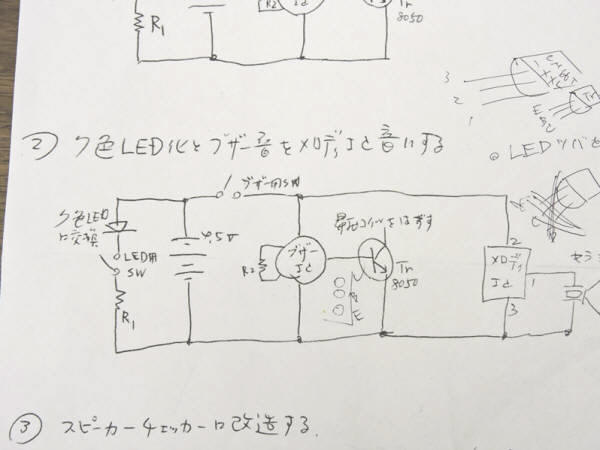 R1
R2
Ic
Tr
8050
3
2
1
E
B
C
② 7色LED化とブザー音をメロディIc音にする
◎LEDツバを
ブザー用SW
7色LED
に交換
LED用
SW
4.5V
R1
R2
ブザー
Ic
昇圧コイルをはずす
Tr
8050
E
2
メロディ
Ic
1
3
セラミ
③ スピーカーチェッカーに改造する.